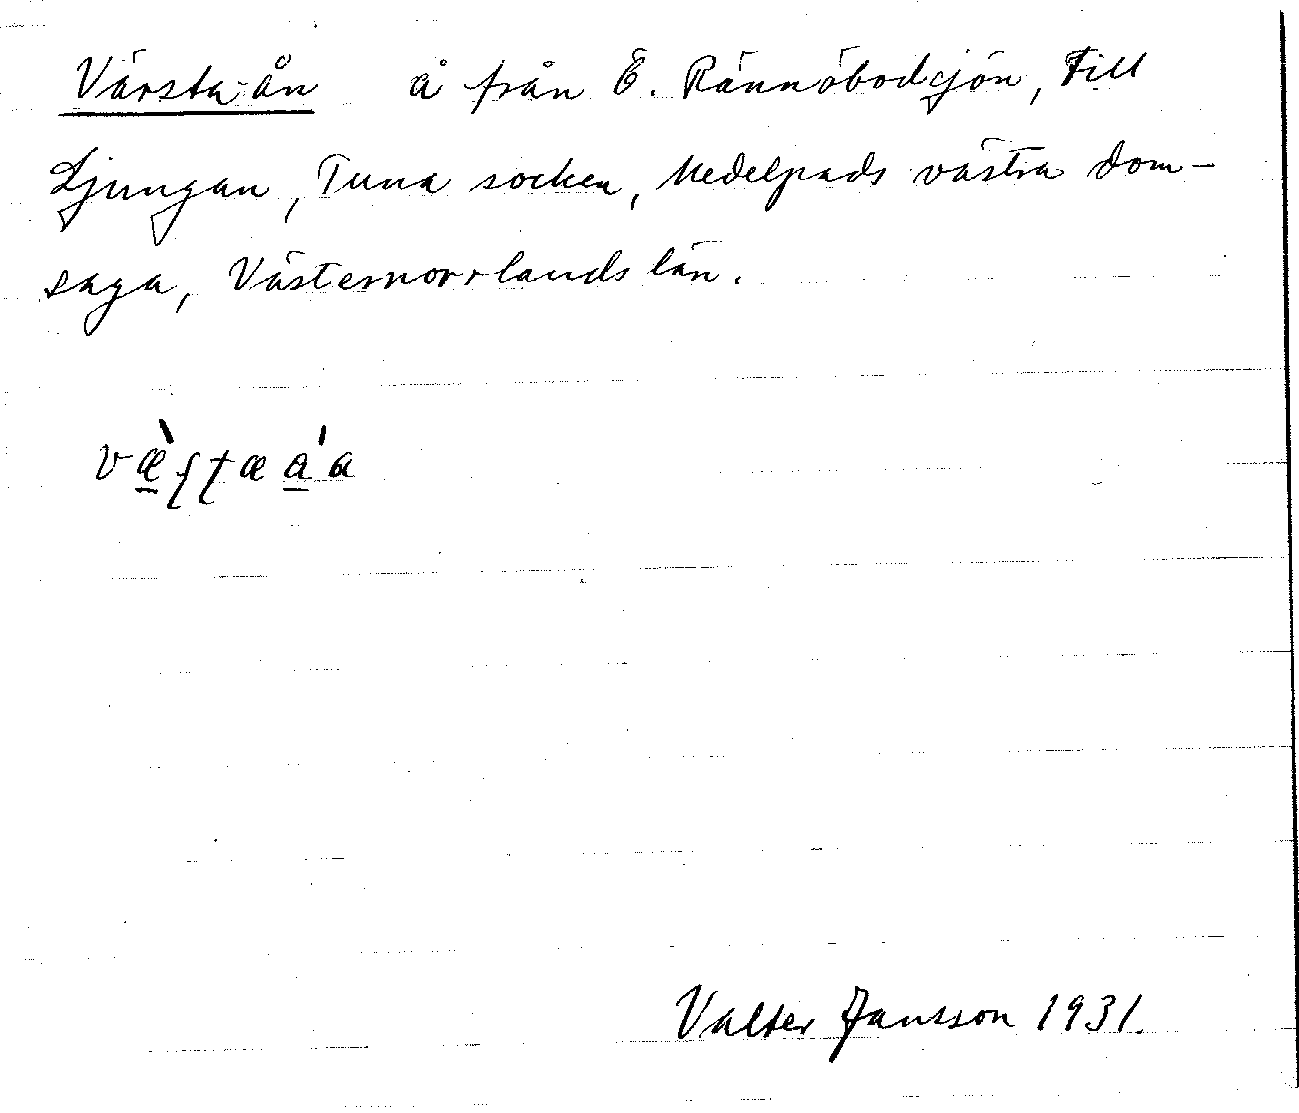 Värsta-ån å från Ö. Rännöbodsjön, Till
Ljungan, Tuna socken, Medelpads västra dom-
saga, Västernorrlands län.
væ̀ʂʈæ áa
Valter Jansson 1931.